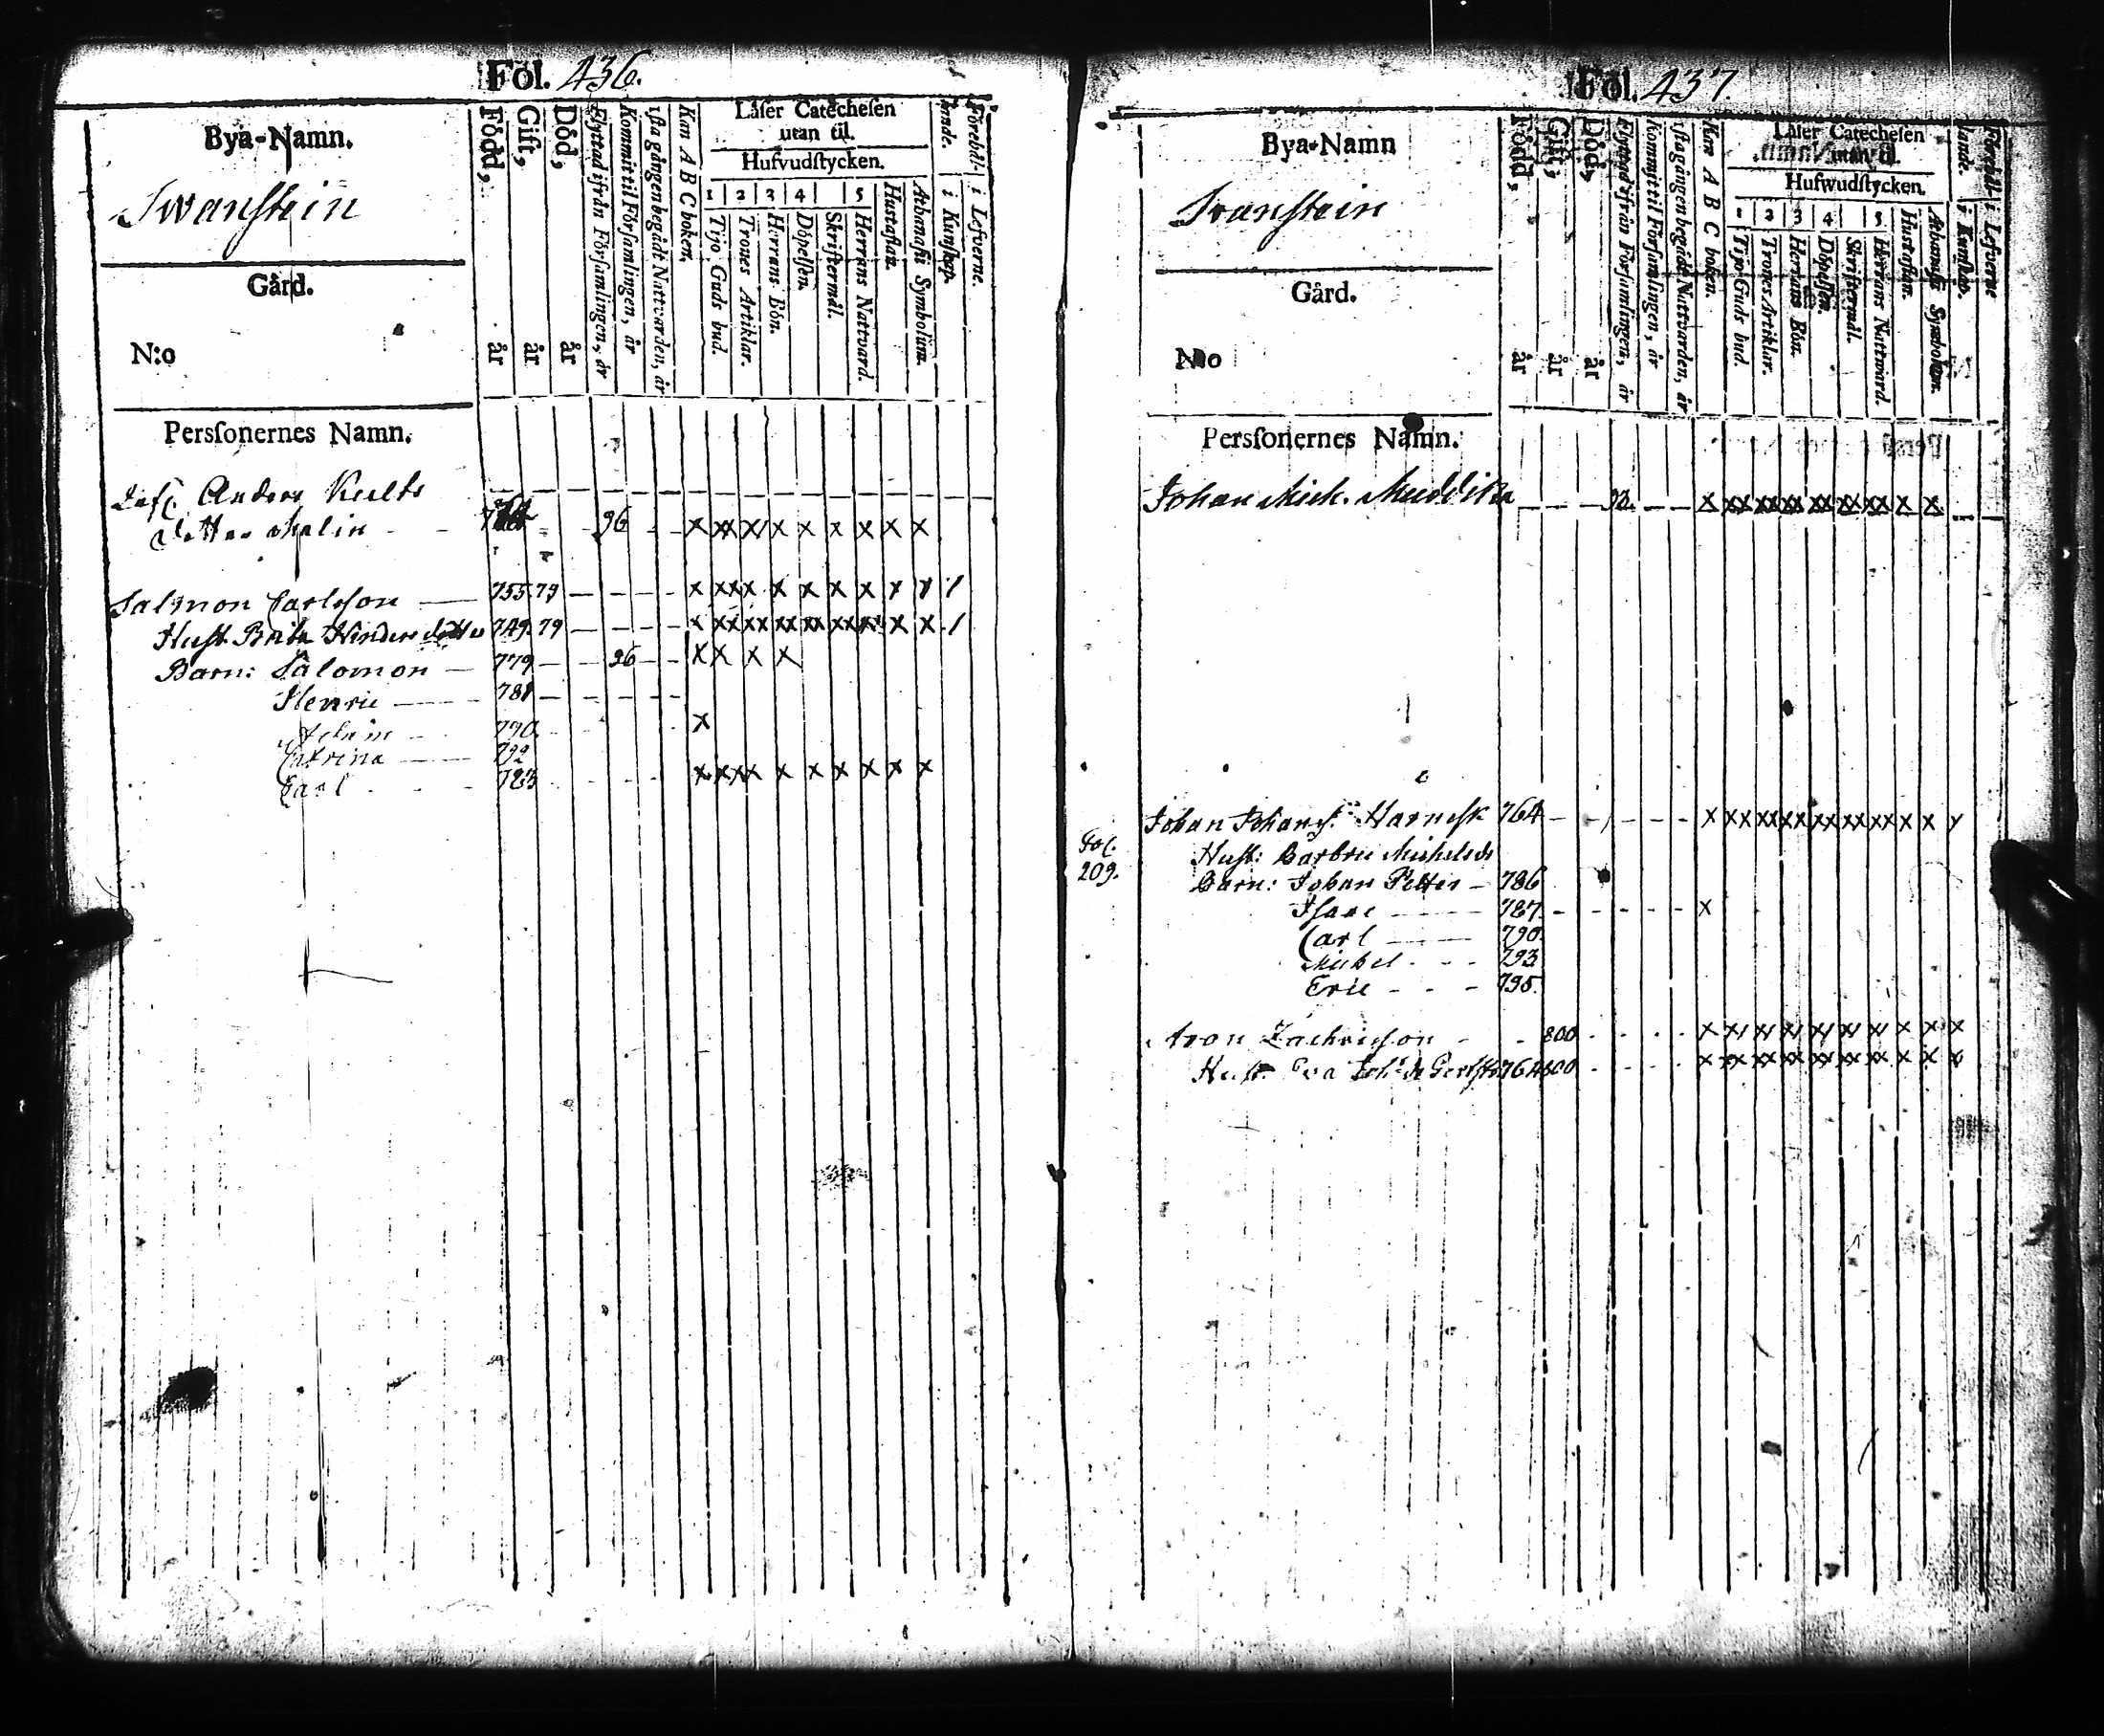 Fol. 436.
Bya-Namn.
Swanstein
Gård.
N:o
Perſonernes Namn.
Född, år
Gift, år
Död, år
Flyttad ifrån Förſamlingen, år
Kommit til Förſamlingen, år
1ſta gången begådt Nattvarden, år
Kan A B C boken.
Låſer Catecheſen
utan til.
Hufvudſtycken.
1 2 3 4 5
Tijo Guds bud.
Trones Artiklar.
Herrans Bön.
Döpelſen.
Skriftermål.
Herrans Nattvard.
Hustaflan.
Athanaſii Symbolum.
i Kunſkap.
i Lefverne.
Anders Kults
Dotter Malin - - 96 - - x xx x x x x x x x
Salmon Carlsson — 755. 79 — — — — x xx x x x x x x x /
Hust. Brita Hindersdotter 749. 79 — — — — x xx xx xx xx xx xx x x /
Barn: Salomon — 779 — — 96 — — x x x x
Henric — 781 — — — — —
Adam — 790. x
Catrina — 792
Carl - - 783 - - - - x xx x x x x x x x
Fol. 437
Bya-Namn
Swanstein
Gård.
N:o
Perſonernes Namn.
Född, år
Gift, år
Död, år
Flyttad ifrån Förſamlingen, år
Kommit til Förſamlingen, år
1ſta gången begådt Nattvarden, år
Kan A B C boken.
Låſer Catecheſen
utan til.
Hufwudſtycken.
1 2 3 4 5
Tijo Guds bud.
Trones Artiklar.
Herrans Bön.
Döpelſen.
Skriftermål.
Herrans Nattvard.
Hustaflan.
Athanaſii Symbolum.
i Kunſkap.
i Lefverne
Johan Mich. — — — — — x xx xx xx xx xx xx x x
Johan Johanss. Harnesk 764 — — — — — x xx xx xx xx xx xx x x
Fol.
209.
Hust: Barbru Michelsdr
Barn: Johan Petter — 786
Isaac — 787. - - - - - x
Carl — 790.
Michel - - 793
Eric - - - 795.
Aron Zachrisson - - 800 - - - - x xx xx xx xx xx xx x x x
Hust. Eva 764 800 - - - - x xx xx xx xx xx xx x x x